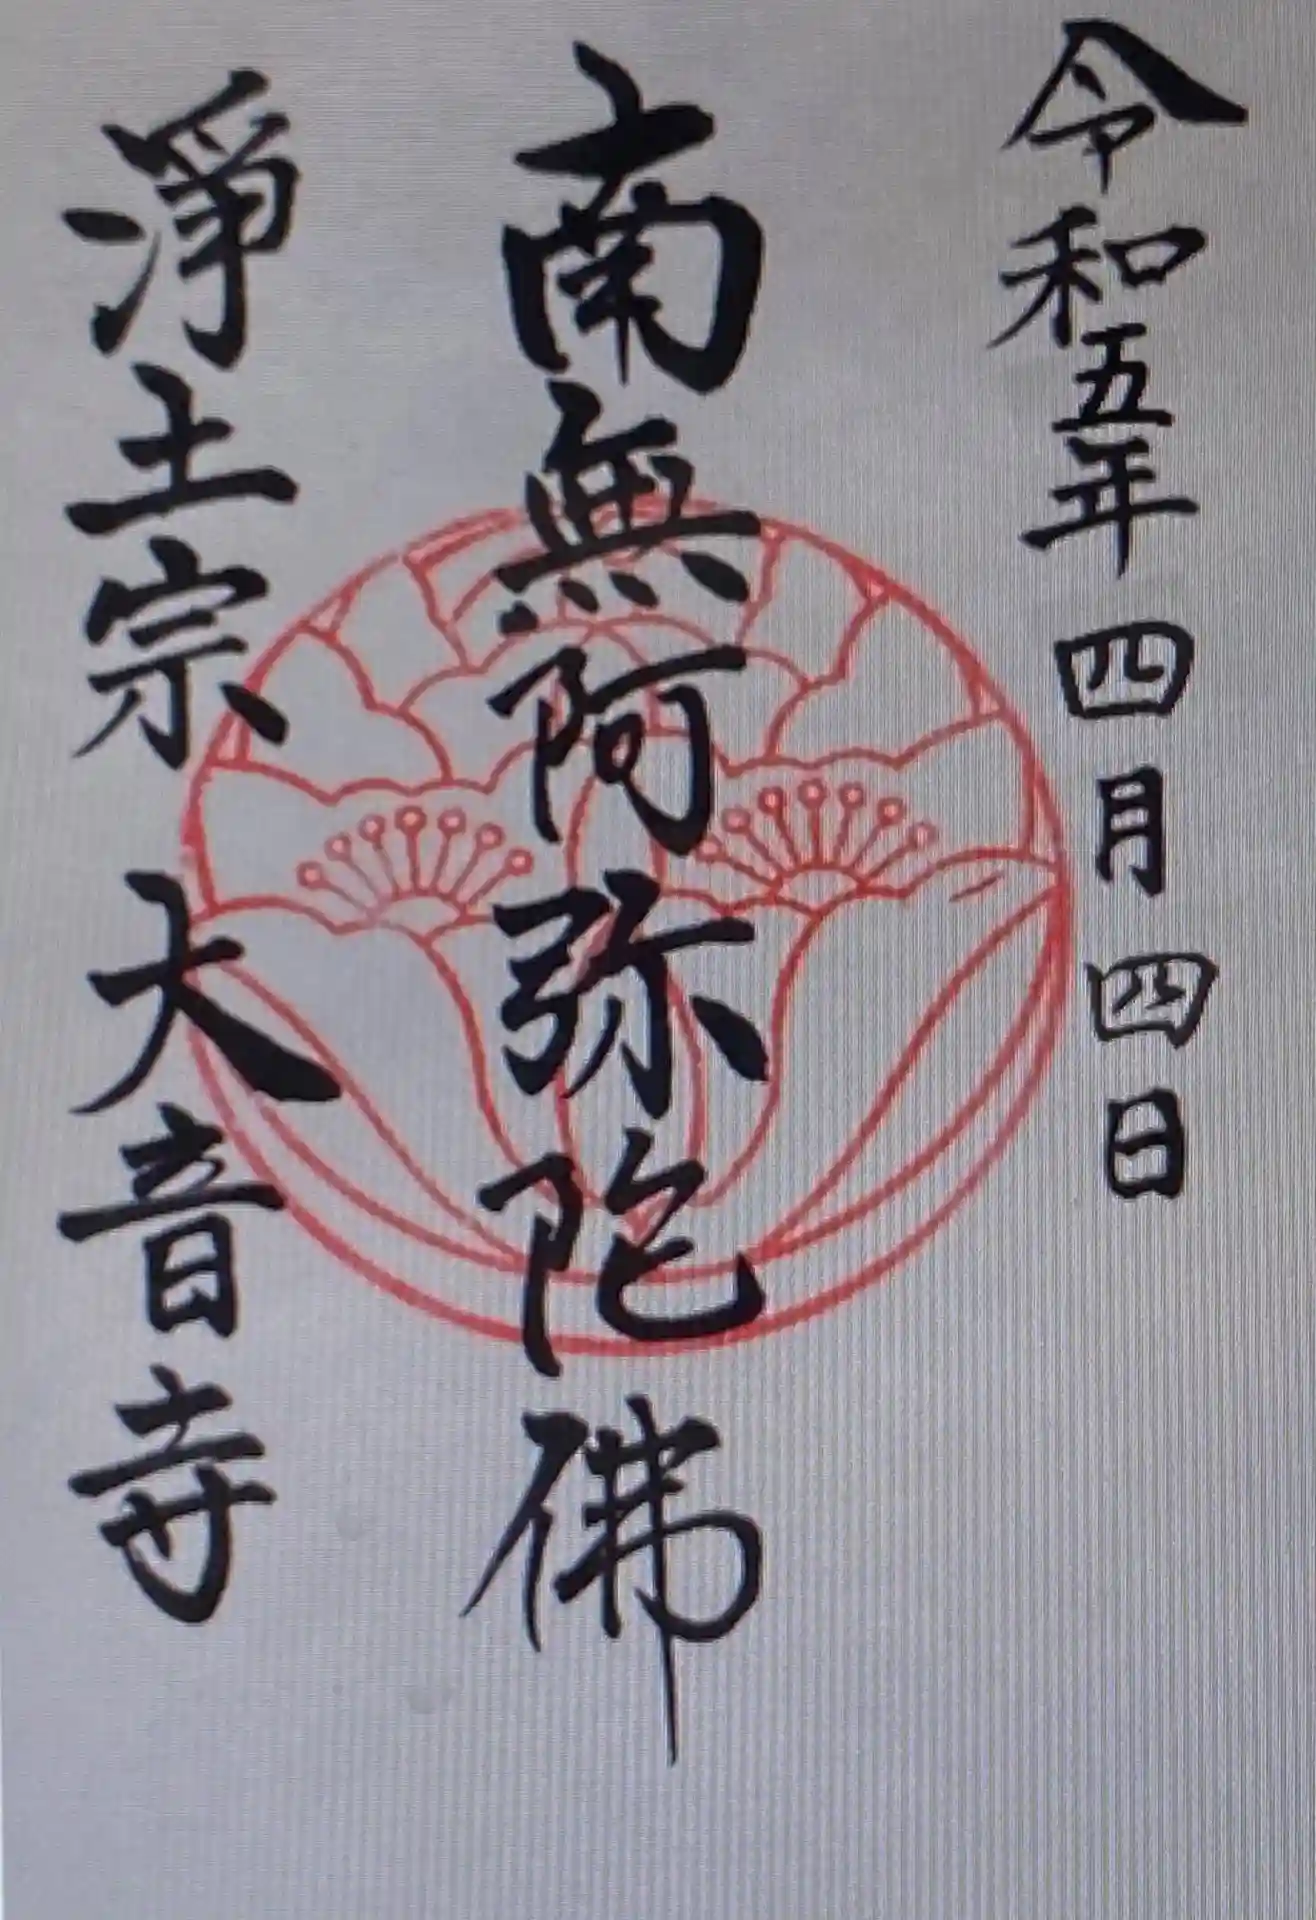 令和五年四月四日
南無阿弥陀佛
淨土宗大音寺